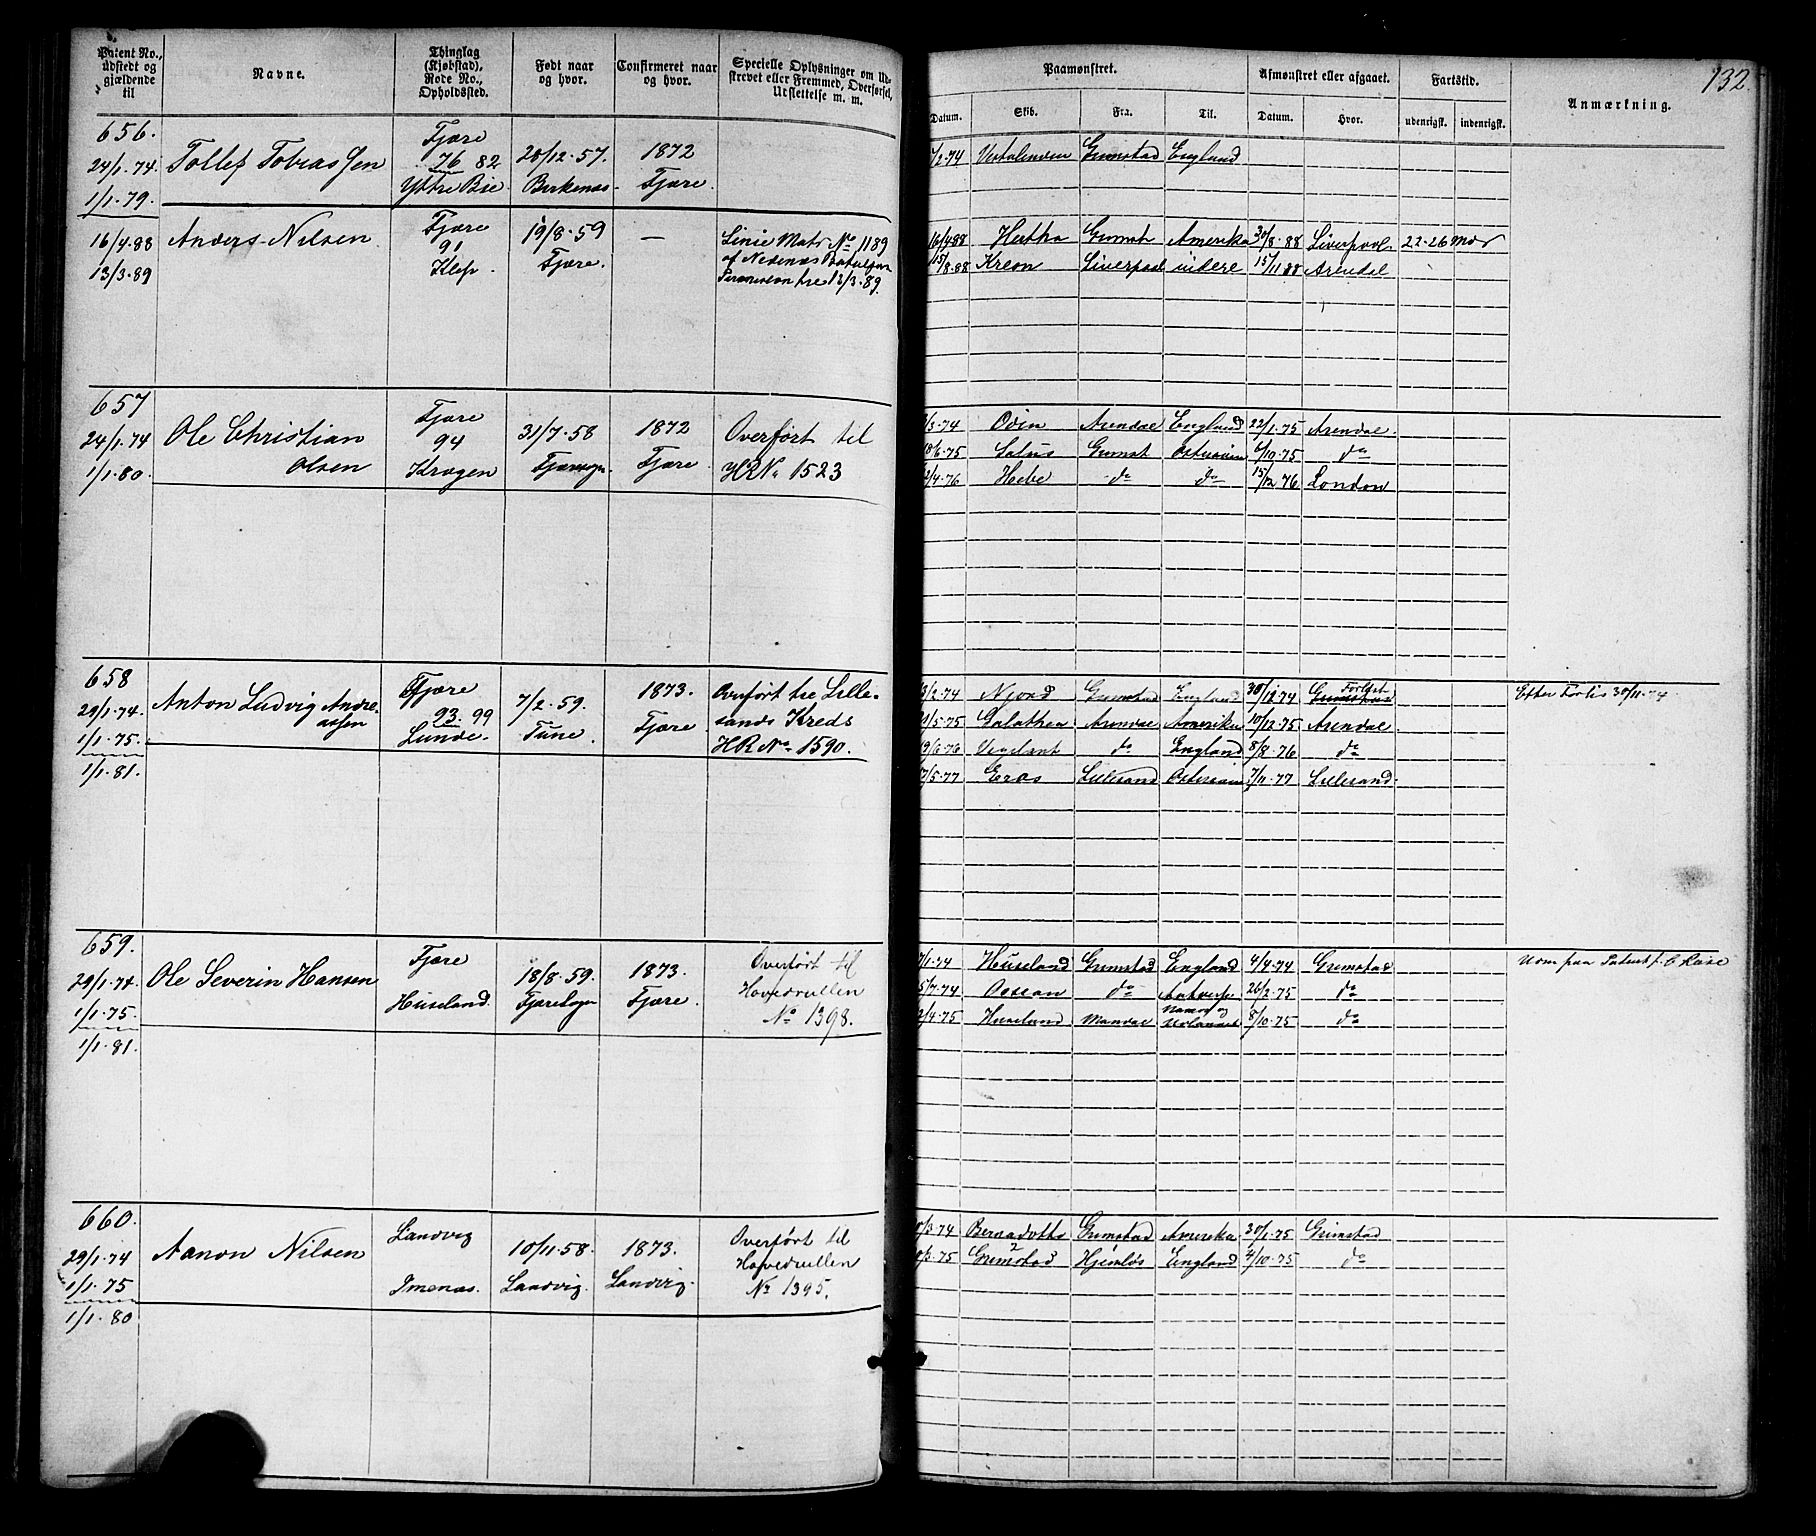 Patent No., Udstedt og gjældende til
Navne.
Thinglag (Kjøbstad), Rode No., Opholdssted.
Født naar og hvor.
Confirmeret naar og hvor.
Specielle Oplysninger om Udskrevet eller Fremmed, Overførsel, Utslettelse m. m.
Paamønstret.
Datum. Skib. Fra. Til.
Afmønstret eller afgaaet.
Datum. Hvor.
Fartstid.
udenrigsk. indenrigsk.
Anmærkning.
132.
656.
24/1.74.
1/1.79.
Tollef Tobiassen
Fjære
76 82
Yttre Bie
20/12.57.
Birkenæs
1872
Fjære.
/2.74 Grimstad England
16/4.88
13/3.89
Anders Nilsen
Fjære
91
Klep.
19/8.59
Fjære.
—
Linie Mats No 1189
af Nedenæs Batallion
13/3.89.
16/4.88 Hertha Grimst Amerika 30/8.88 Liverpool 22.26
15/8.88 Kreon Liverpool indere 15/11.88 Arendal
657
24/1.74
1/1.80.
Ole Christian
Olsen
Fjære
94
Krogen
31/7.58
Fjæresogn
1872
Fjære.
Overført til
HR No 1523
/3.74 Odin Arendal England 22/1.75 Arendal.
/6.75 Salus Grimst Østersøen 6/10.75 do
/4.76 Hebe do do 15/12 76 London
658
29/1.74.
1/1.75.
1/1.81.
Anton Ludvig Andre-
assen
Fjære
93. 99
Lunde.
7/2.59.
Tune.
1873.
Fjære.
Overført til Lille-
sands Kreds
HR No 1590.
3/2.74 Njord Grimstad England 30/12.74 Forlist Grimstad Efter Forlis 30/11.74
/5.75 Galathea Arendal Amerika 10/12.75 Arendal
9/6.76 do England 8/8.76 do
7/5.77 Eros Lillesand Østersøen 7/11.77 Lillesand.
659.
29/1.74.
1/1.75.
1/1.81.
Ole Severin Hansen
Fjære
Huseland.
18/8.59.
Fjæresogn
1873.
Fjære.
Overført til
Hovedrullen
No 1398.
7/1.74 Huseland Grimstad England 4/4.74 Grimstad
5/7.74 Ossian do Antverp. 26/2.75 do
2/4.75 Huseland Mandal 8/10.75 do
660.
29/1.74
1/1.75
1/1.80
Aanon Nilsen
Landvig
Imenæs.
10/11.58.
Landvig.
1873.
Landvig.
Overført til
Hovedrullen
No 1395.
/3.74 Bernadotte Grimstad Amerika 30/1.75 Grimstad
/3.75 Grimstad Hjemløs England 4/10.75 do